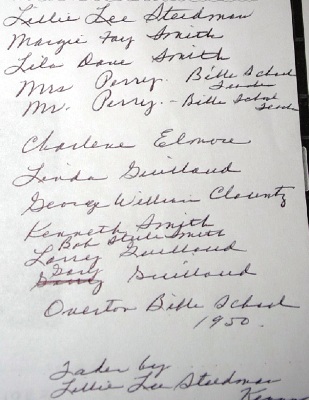 Lillie Lee Steedman
Margie Fay Smith
Lila Dave Smith
Mrs Perry. Bible School
Leader
Mr. Perry. - Bible School
Leader
Charlene Elmore
Linda Guillaud
George William Clountz
Kenneth Smith
Bob Steele Smith
Larry Guillaud
Gary
Guillaud
Overton Bible School
1950.
Taken by
Lillie Lee Steedman